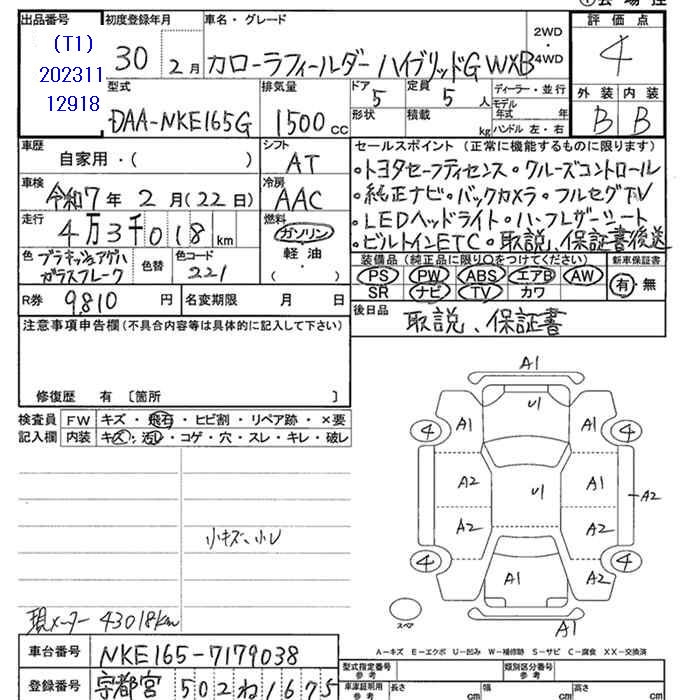 出品番号
(T1)
202311
12918
初度登録年月
30 2月
車名・グレード
カローラフィールダー ハイブリッドG WXB
2WD
・
4WD
評価点
4
外装 内装
B B
型式
DAA-NKE165G
排気量
1500 cc
ドア
5
形状
定員
5 人
積載
kg
ディーラー・並行
モデル
年式 年
ハンドル 左・右
車歴
自家用・( )
シフト
AT
車検
令和7年2月(22日)
冷房
AAC
走行
4万3千018km
燃料
ガソリン
軽油
( )
色 ブラキッシュアゲハ
ガラスフレーク
色替
色コード
221
R券 9,810 円
名変期限 月 日
セールスポイント(正常に機能するものに限ります)
・トヨタセーフティセンス・クルーズコントロール
・純正ナビ・バックカメラ・フルセグTV
・LEDヘッドライト・ハーフレザーシート
・ビルトインETC・取説、保証書後送
装備品(純正品に限り○をつけてください)
PS PW ABS エアB AW
SR ナビ TV カワ
新車保証書
有・無
後日品
取説、保証書
注意事項申告欄(不具合内容等は具体的に記入して下さい)
修復歴 有 〔箇所 〕
検査員
記入欄
FW キズ・飛石・ヒビ割・リペア跡・×要
内装 キズ・汚レ・コゲ・穴・スレ・キレ・破レ
小キズ、小ヨ
現メーター 43018km
A1
U1
4 A1 A1 4
A2 U1 A1
A2
A2 A2
4 A1 A2 4
スペア
A1
A-キズ E-エクボ U-凹み W-補修跡 S-サビ C-腐食 XX-交換済
車台番号 NKE165-7179038
登録番号 宇都宮 502ね1675
型式指定番号
参考
類別区分番号
参考
車庫証明用
参考
長さ cm
幅 cm
高さ cm